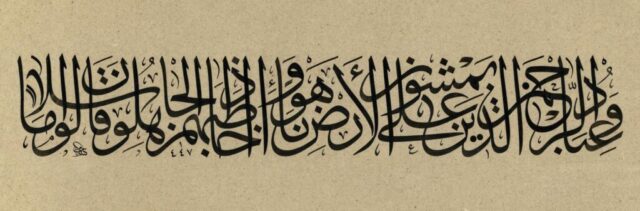 وعباد الرحمن الذين يمشون على الأرض هونا وإذا خاطبهم الجاهلون قالوا سلاما